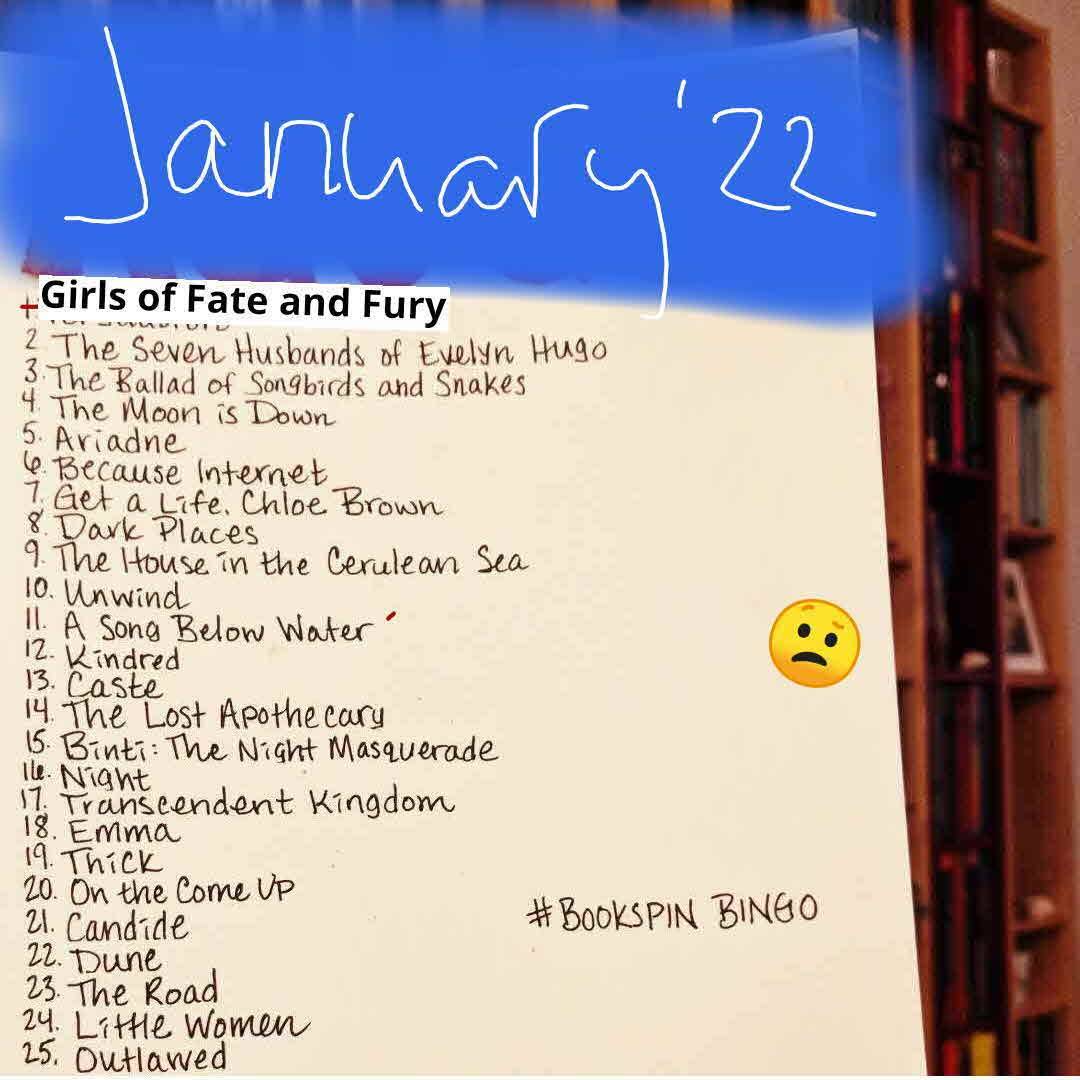 January '22
Girls of Fate and Fury
2 The Seven Husbands of Evelyn Hugo
3. The Ballad of Songbirds and Snakes
4. The Moon is Down
5. Ariadne
6. Because Internet
7. Get a Life. Chloe Brown
8. Dark Places
9. The House in the Cerulean Sea
10. Unwind
11. A Song Below Water
12. Kindred
13. Caste
14. The Lost Apothecary
15. Binti: The Night Masquerade
16. Night
17. Transcendent Kingdom
18. Emma
19. Thick
20. On the Come Up
21. Candide
22. Dune
23. The Road
24. Little Women
25. Outlawed
#BOOKSPIN BINGO